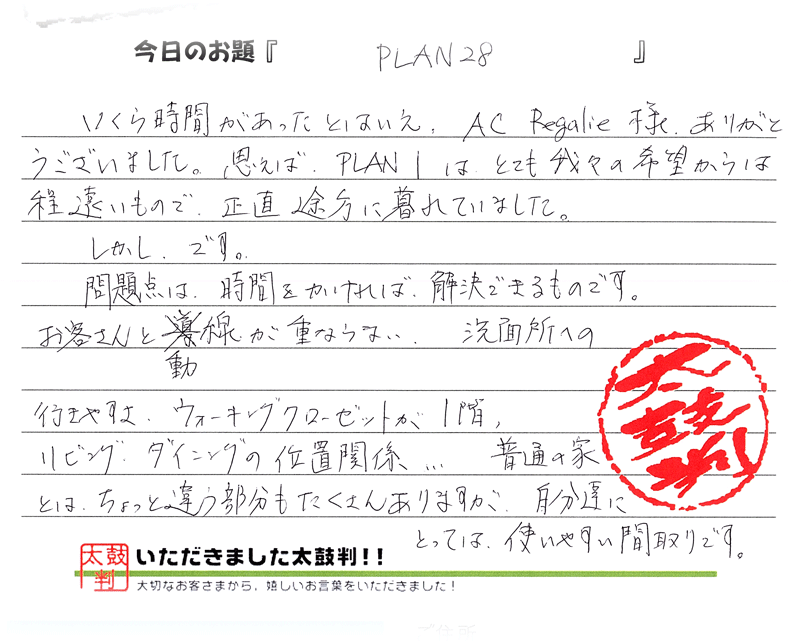 今日のお題『 PLAN28 』
いくら時間があったとはいえ、AC Regalie 様、ありがと
うございました。思えば、PLAN 1 は、とても我々の希望からは
程遠いもので、正直途方に暮れていました。
しかし、です。
問題点は、時間をかければ、解決できるものです。
お客さんと導線が重ならない、洗面所への
動
行きやすさ、ウォーキングクローゼットが1階、
リビング・ダイニングの位置関係、… 普通の家
とは、ちょっと違う部分もたくさんありますが、自分達に
とっては、使いやすい間取りです。
太鼓判
太鼓判
いただきました太鼓判!!
大切なお客さまから、嬉しいお言葉をいただきました!